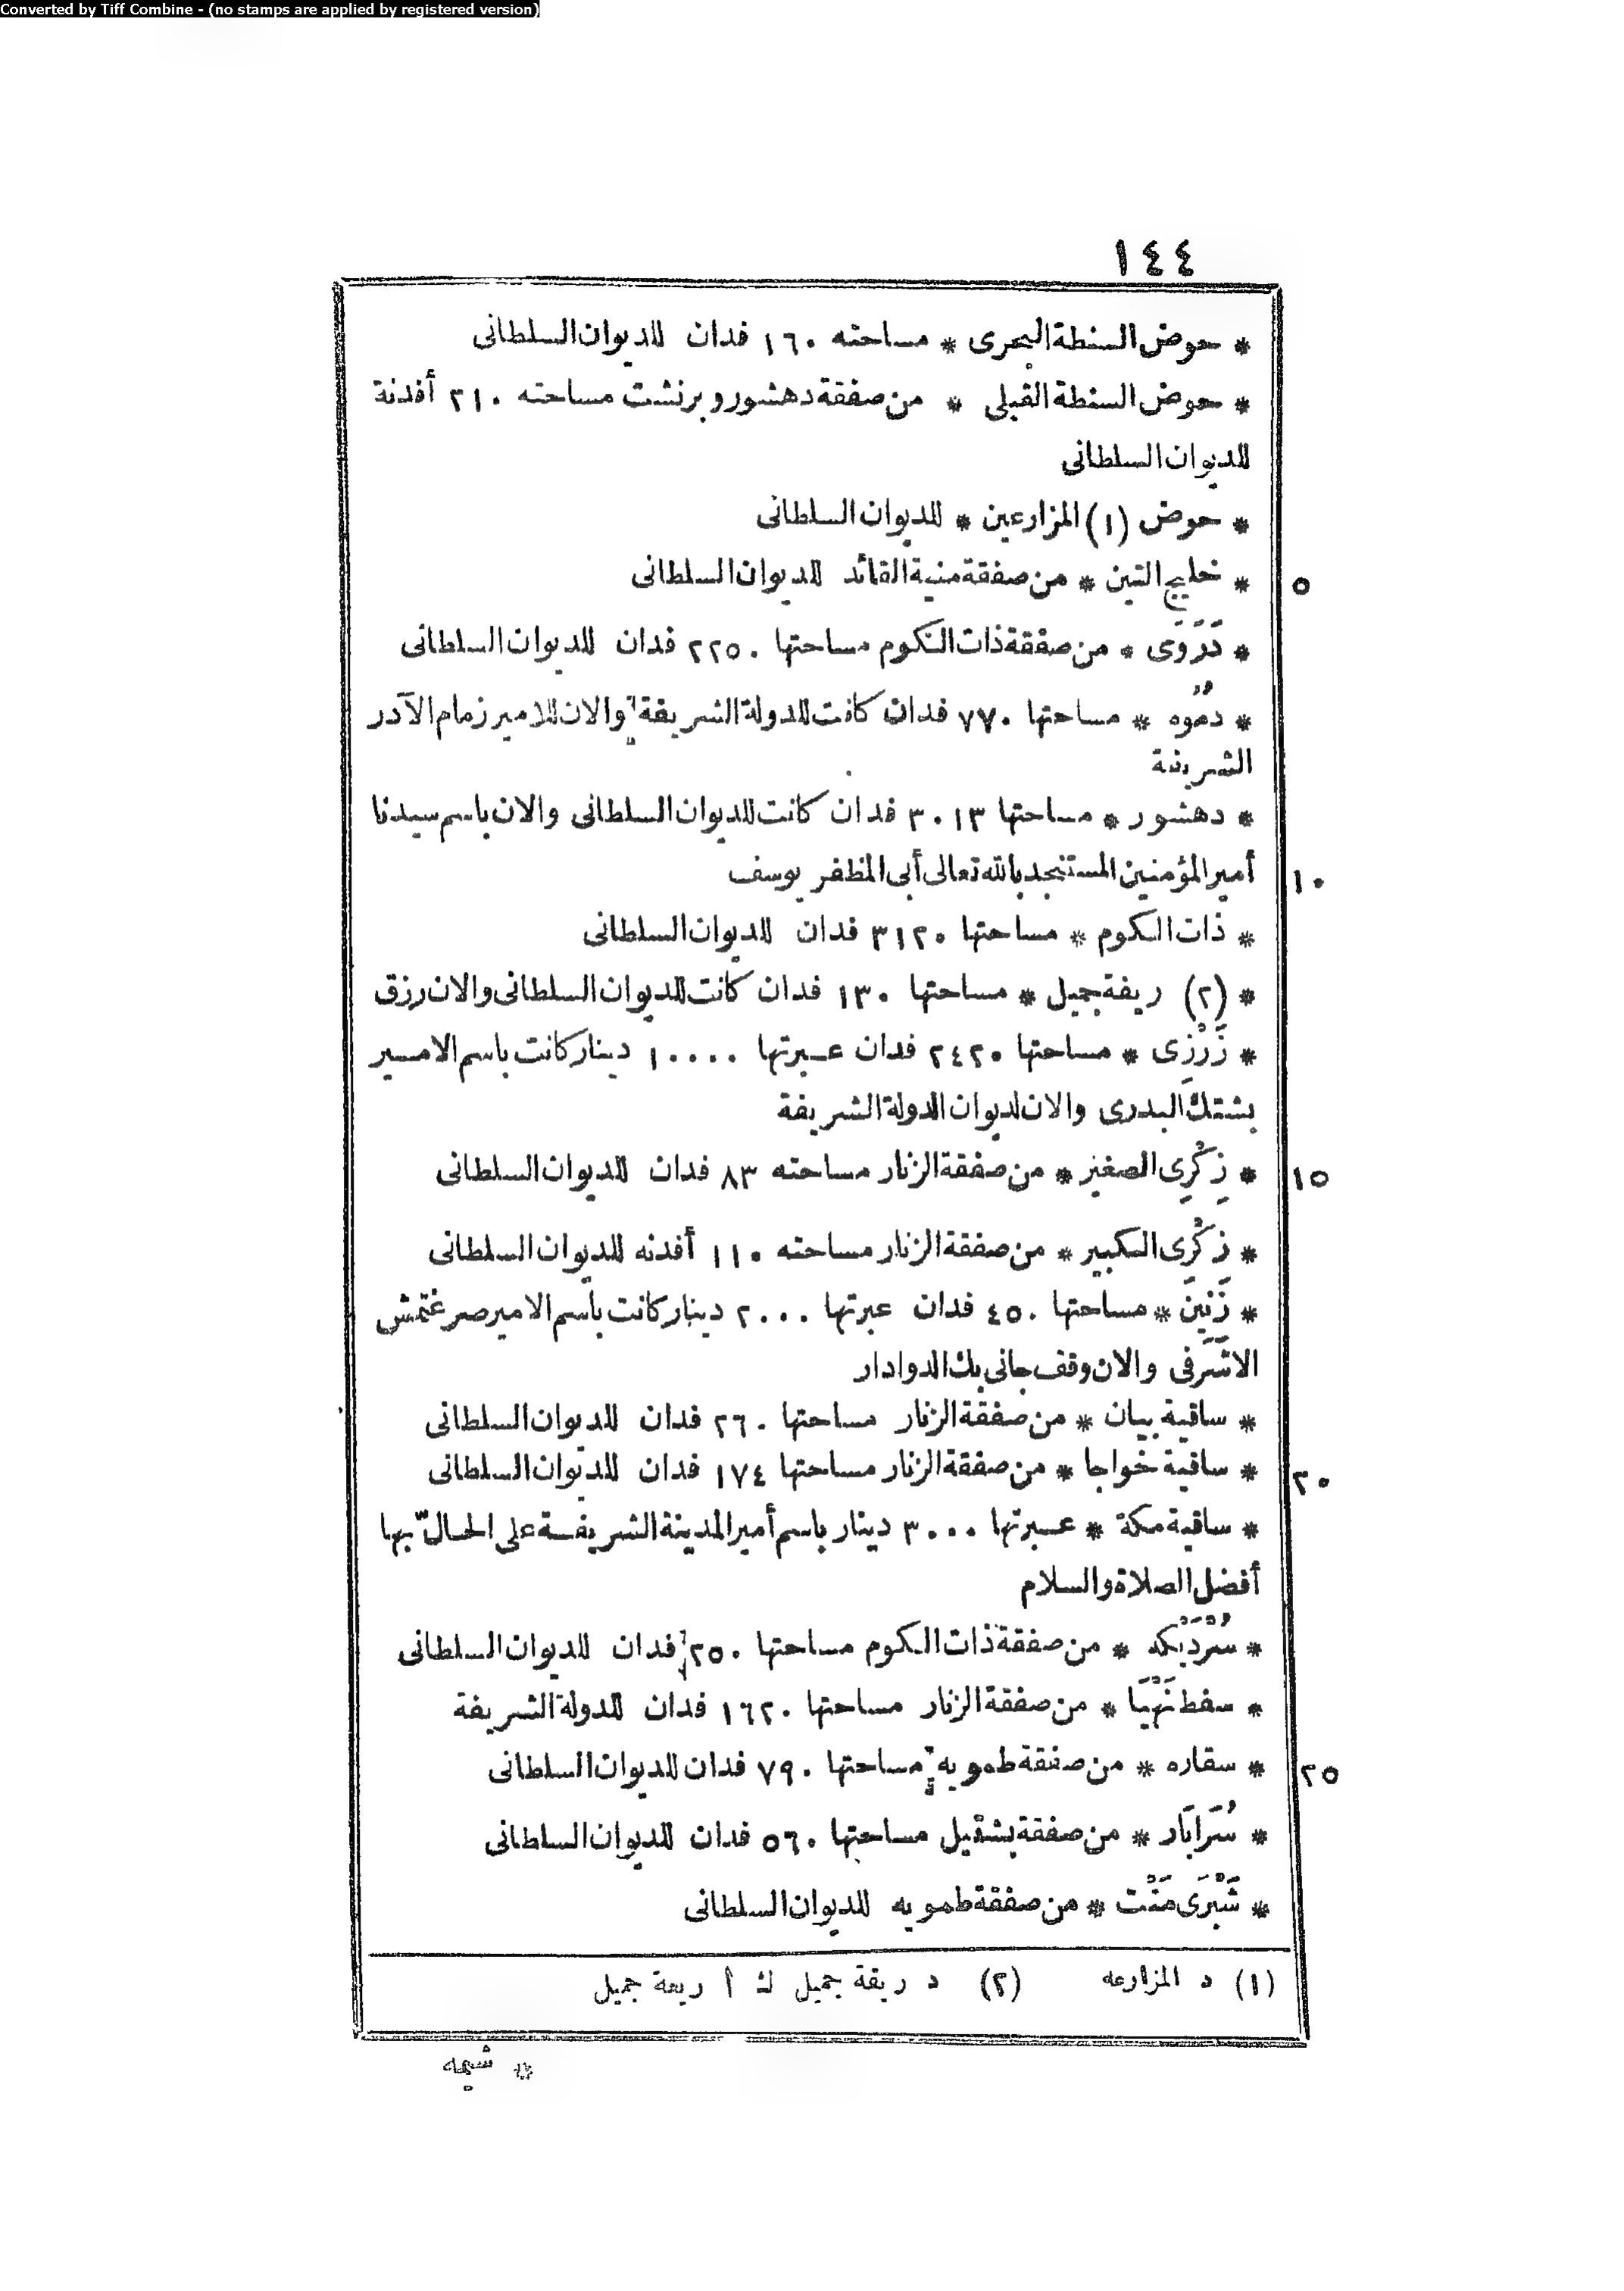 Converted by Tiff Combine - (no stamps are applied by registered version)
١٤٤
* حوض السنطة البحرى * مساحته ١٦٠ فدان للديوان السلطانى
* حوض السنطة القبلى * من صفقة دهشور وبرنشت مساحته ٢١٠ أفدنة
للديوان السلطانى
* حوض (١) المزارعين * للديوان السلطانى
* خليج التين * من صفقة منية القائد للديوان السلطانى ٥
* دَرَوَى * من صفقة ذات الكوم مساحتها ٢٢٥٠ فدان للديوان السلطانى
* دمُوه * مساحتها ٧٧٠ فدان كانت للدولة الشريفة والان للامير زمام الآدر
الشريفة
* دهشور * مساحتها ٣٠١٣ فدان كانت للديوان السلطانى والان باسم سيدنا
أمير المؤمنين المستنجد بالله تعالى أبى المظفر يوسف ١٠
* ذات الكوم * مساحتها ٣١٢٠ فدان للديوان السلطانى
* (٢) ريفة جميل * مساحتها ١٣٠ فدان كانت للديوان السلطانى والان رزق
* زَرْزِى * مساحتها ٢٤٢٠ فدان عبرتها ١٠٠٠٠ دينار كانت باسم الامير
بشتك البدرى والان لديوان الدولة الشريفة
* زِكْرِى الصغير * من صفقة الزنار مساحته ٨٣ فدان للديوان السلطانى ١٥
* زكْرى الكبير * من صفقة الزنار مساحته ١١٠ أفدنه للديوان السلطانى
* زَنَين * مساحتها ٤٥٠ فدان عبرتها ٢٠٠٠ دينار كانت باسم الامير صرغتمش
الاشَرفى والان وقف جانى بك الدوادار
* ساقية بيان * من صفقة الزنار مساحتها ٢٦٠ فدان للديوان السلطانى
* ساقية خواجا * من صفقة الزنار مساحتها ١٧٤ فدان للديوان السلطانى ٢٠
* ساقية مكة * عبرتها ٣٠٠٠ دينار باسم أمير المدينة الشريفة على الحالّ بها
أفضل الصلاة والسلام
* سُرْدَيْكه * من صفقة ذات الكوم مساحتها ٢٥٠ فدان للديوان السلطانى
* سفط نَهْيَا * من صفقة الزنار مساحتها ١٦٢٠ فدان للدولة الشريفة
* سقاره * من صفقة طمويه مساحتها ٧٩٠ فدان للديوان السلطانى ٢٥
* سُرَابَار * من صفقة بشتيل مساحتها ٥٦٠ فدان للديوان السلطانى
* شَبْرَى مَنْت * من صفقة طمويه للديوان السلطانى
(١) د المزارعه (٢) د ريقة جميل ك أ ريعة جميل
* شيمه